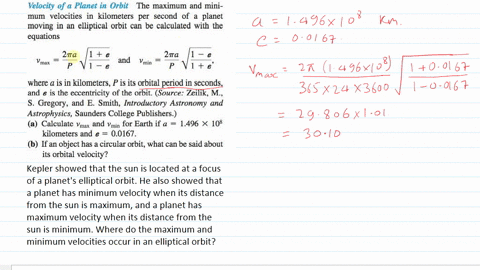 Velocity of a Planet in Orbit The maximum and mini-
mum velocities in kilometers per second of a planet
moving in an elliptical orbit can be calculated with the
equations
v_max = 2πa/P √((1 + e)/(1 − e)) and v_min = 2πa/P √((1 − e)/(1 + e)),
where a is in kilometers, P is its orbital period in seconds,
and e is the eccentricity of the orbit. (Source: Zeilik, M.,
S. Gregory, and E. Smith, Introductory Astronomy and
Astrophysics, Saunders College Publishers.)
(a) Calculate v_max and v_min for Earth if a = 1.496 × 10⁸
kilometers and e = 0.0167.
(b) If an object has a circular orbit, what can be said about
its orbital velocity?
Kepler showed that the sun is located at a focus
of a planet's elliptical orbit. He also showed that
a planet has minimum velocity when its distance
from the sun is maximum, and a planet has
maximum velocity when its distance from the
sun is minimum. Where do the maximum and
minimum velocities occur in an elliptical orbit?
a = 1.496 × 10⁸ km.
e = 0.0167
V_max = 2π (1.496 × 10⁸)/(365 × 24 × 3600) √((1 + 0.0167)/(1 − 0.0167))
= 29.806 × 1.01
= 30.10